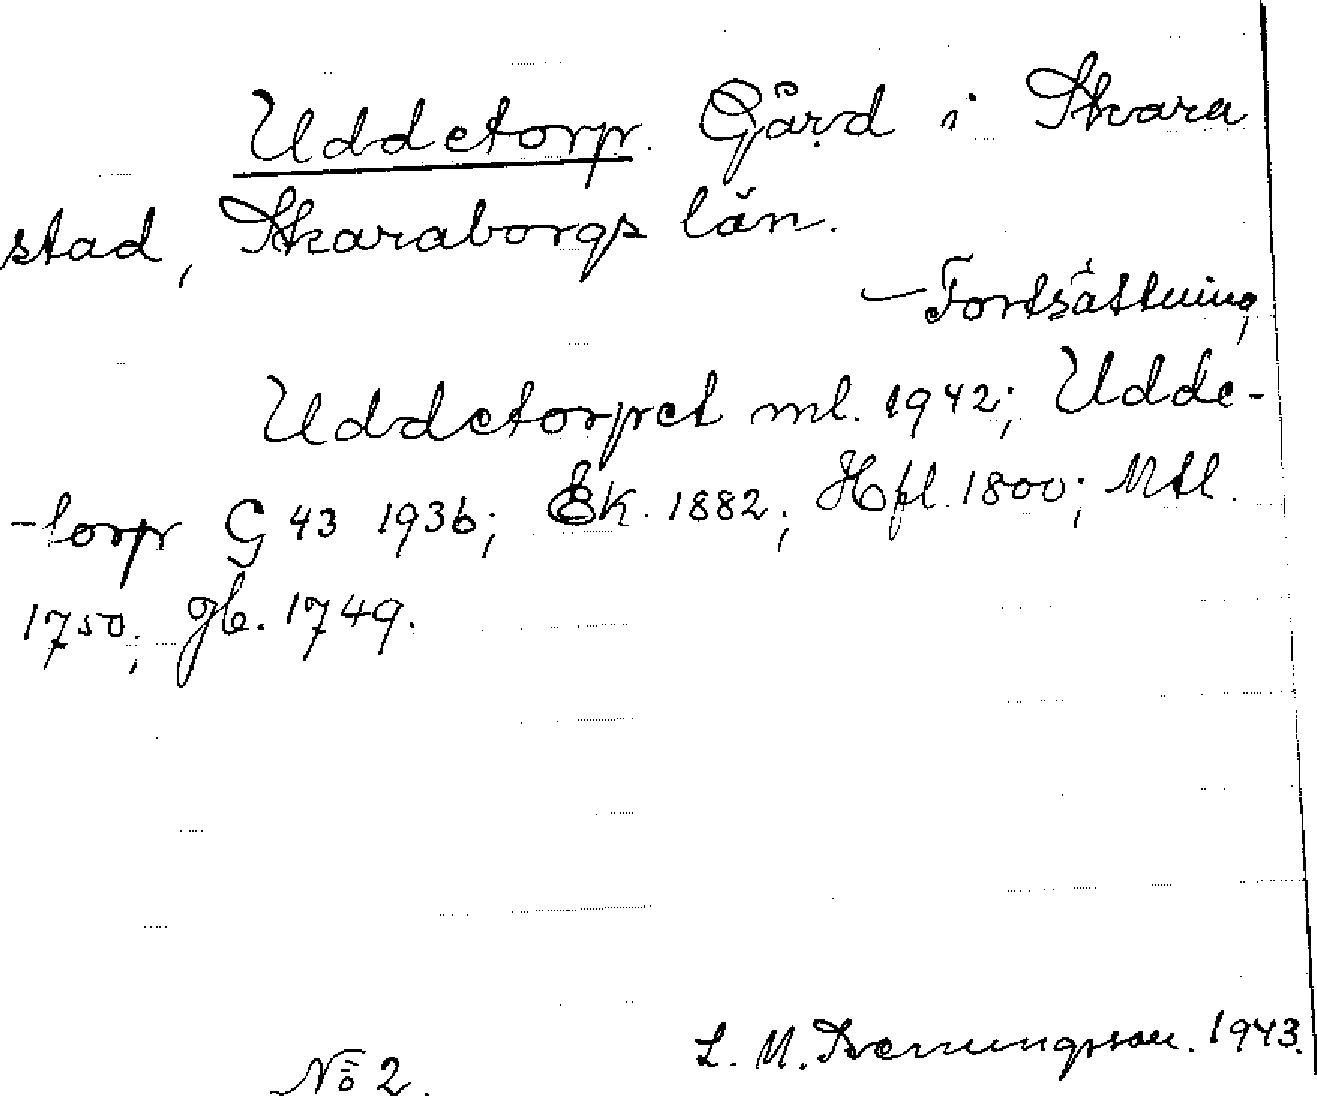 Uddetorp. Gård i Skara
stad, Skaraborgs län.
—Fortsättning
Uddetorpet ml. 1942; Udde-
-torp G 43 1936; Ek. 1882; Hfl. 1800; Mtl.
1750; Jb. 1749.
L. M. 1943.
No 2.